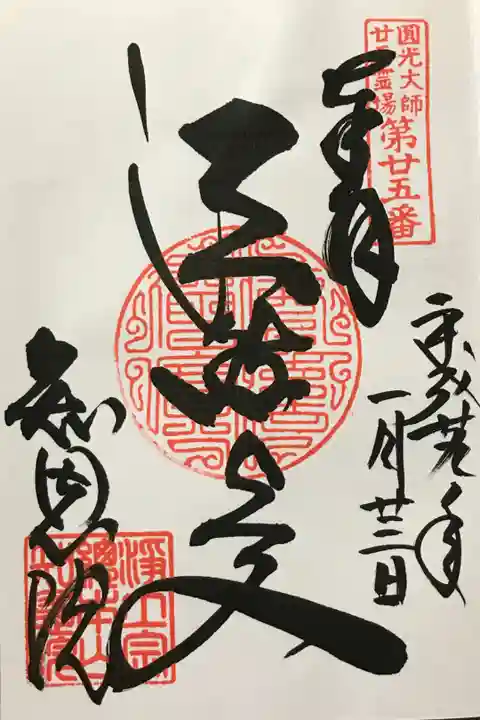 圓光大師
廿五霊場
第廿五番
奉拝
平成廿九年
一月廿三日
法然上人
知恩院
淨土宗
總本山
知恩院